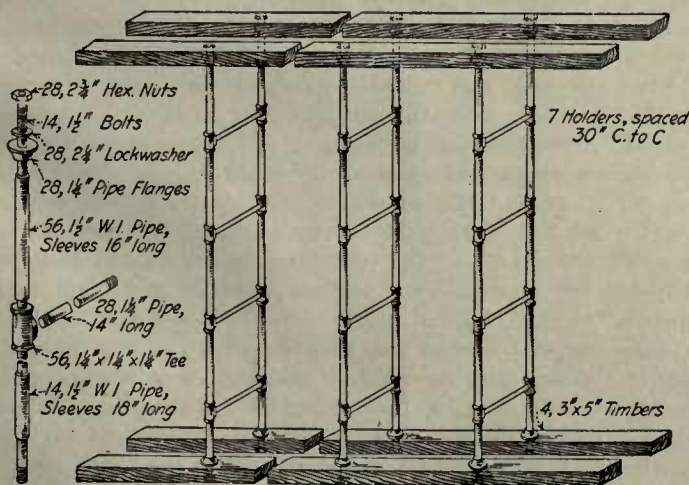 28, 2¾" Hex. Nuts
14, 1½" Bolts
28, 2¼" Lockwasher
28, 1¼" Pipe Flanges
56, 1½" W.I. Pipe,
Sleeves 16" long
28, 1¼" Pipe,
14" long
56, 1¼" x 1¼" x 1¼" Tee
14, 1½" W.I. Pipe,
Sleeves 18" long
7 Holders, spaced
30" C. to C
4, 3" x 5" Timbers